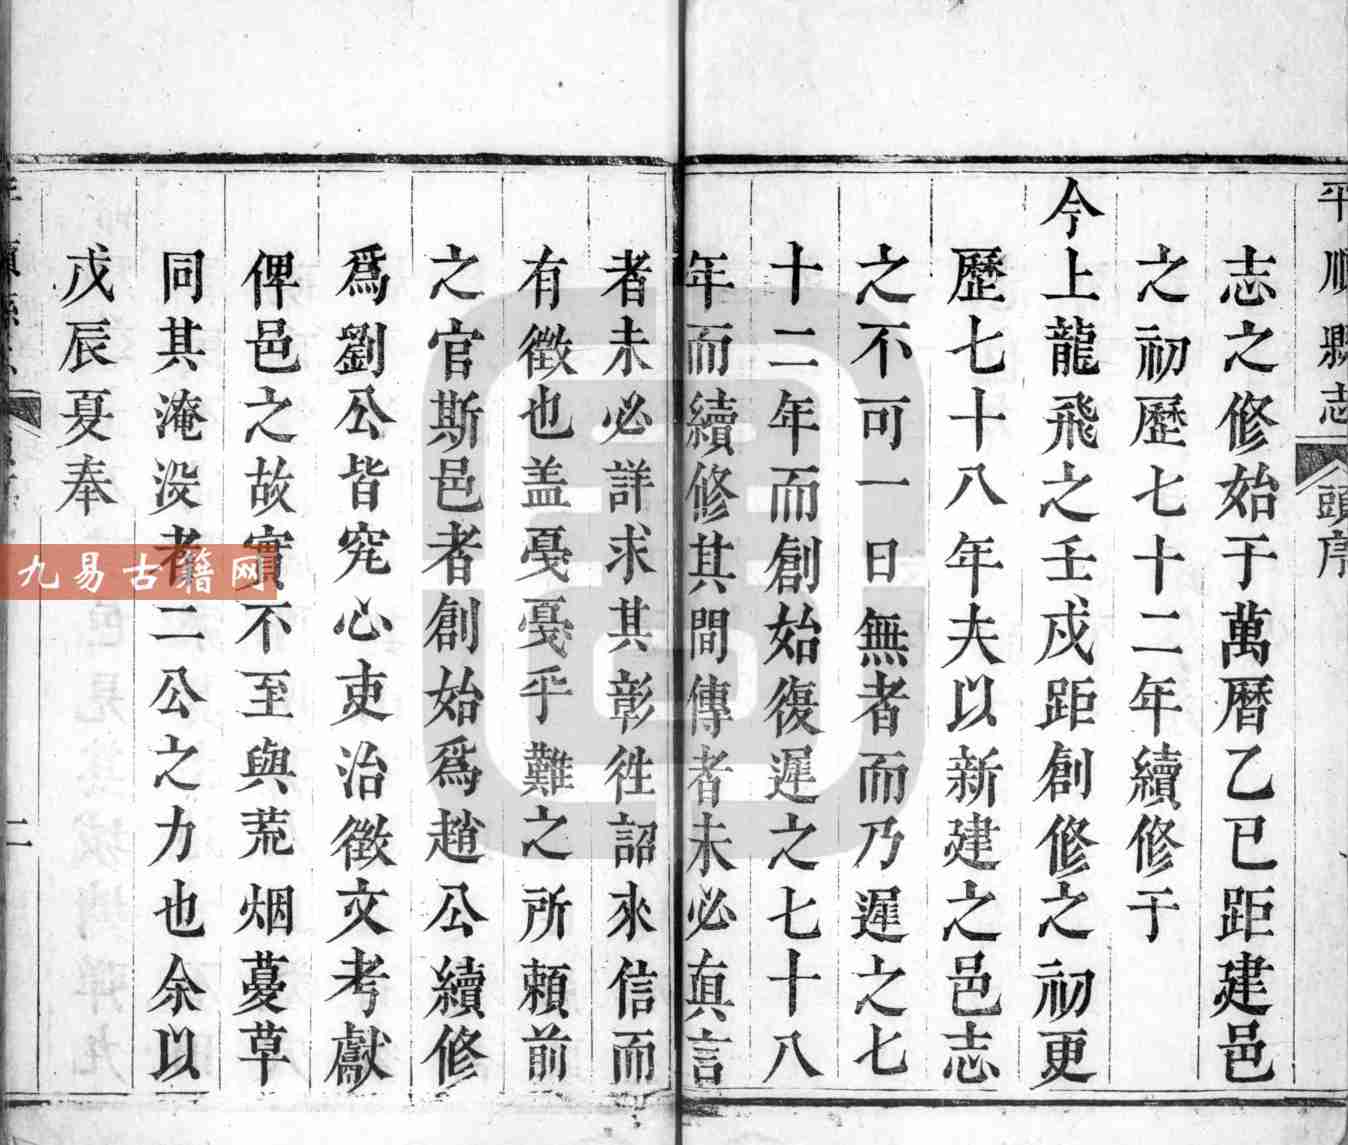 平順縣志
頭序
志之修始于萬曆乙巳距建邑
之初歷七十二年續修于
今上龍飛之壬戌距創修之初更
歷七十八年夫以新建之邑志
之不可一日無者而乃遲之七
十二年而創始復遲之七十八
年而續修其間傳者未必眞言
者未必詳求其彰徃詔來信而
有徵也盖戞戞乎難之所頼前
之官斯邑者創始爲趙公續修
爲劉公皆究心吏治徵文考獻
俾邑之故實不至與荒烟蔓草
同其淹没者二公之力也余以
戊辰夏奉
二
九易古籍网